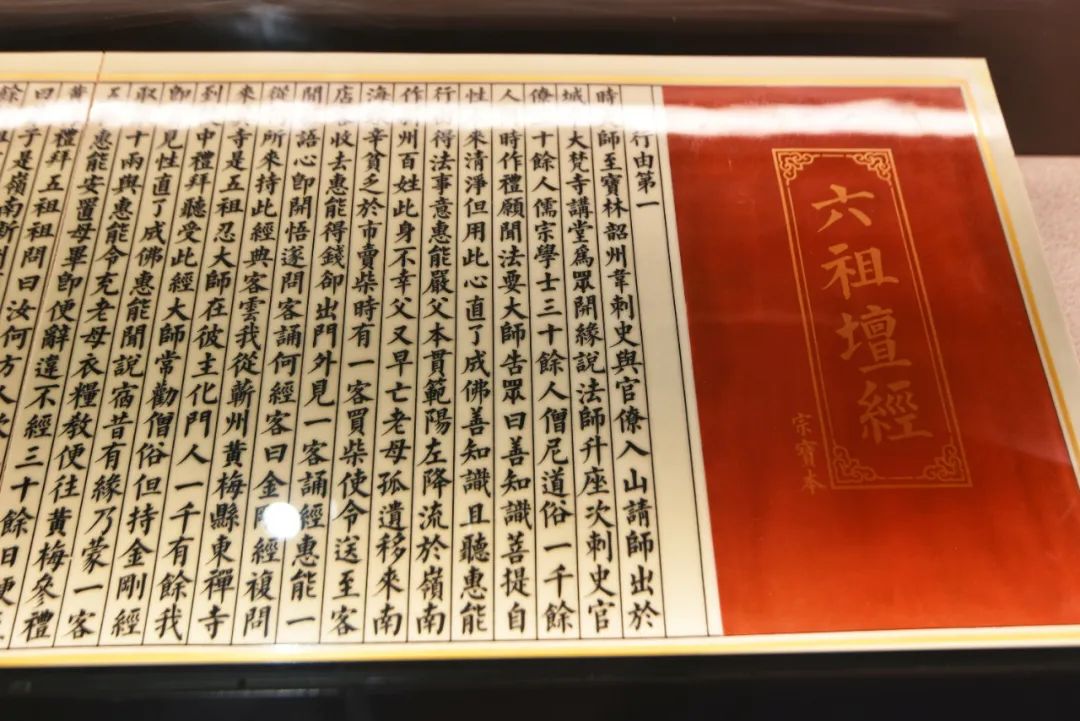 六祖壇經
宗寶本
行由第一
時大師至寶林韶州韋刺史與官僚入山請師出於
城大梵寺講堂爲眾開緣說法師升座次刺史官
僚三十餘人儒宗學士三十餘人僧尼道俗一千餘
人時作禮願聞法要大師告眾曰善知識菩提自
性來清淨但用此心直了成佛善知識且聽惠能
行由得法事意惠能嚴父本貫範陽左降流於嶺南
作州百姓此身不幸父又早亡老母孤遺移來南
海辛貧乏於市賣柴時有一客買柴使令送至客
店客收去惠能得錢卻出門外見一客誦經惠能一
聞語心即開悟遂問客誦何經客曰金剛經複問
從所來持此經典客雲我從蘄州黃梅縣東禪寺
來寺是五祖忍大師在彼主化門人一千有餘我
到中禮拜聽受此經大師常勸僧俗但持金剛經
即見性直了成佛惠能聞說宿昔有緣乃蒙一客
取十兩與惠能令充老母衣糧教便往黃梅參禮
五惠能安置母畢即便辭違不經三十餘日便至
黃禮拜五祖祖問曰汝何方人欲
曰子是嶺南新州
餘